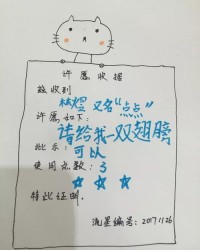 许愿收据
兹收到
林煜 又名“点点”
许愿如下:
请给我一双翅膀
批示:可以
使用点数:3
特此证明.
流星编号:20171126